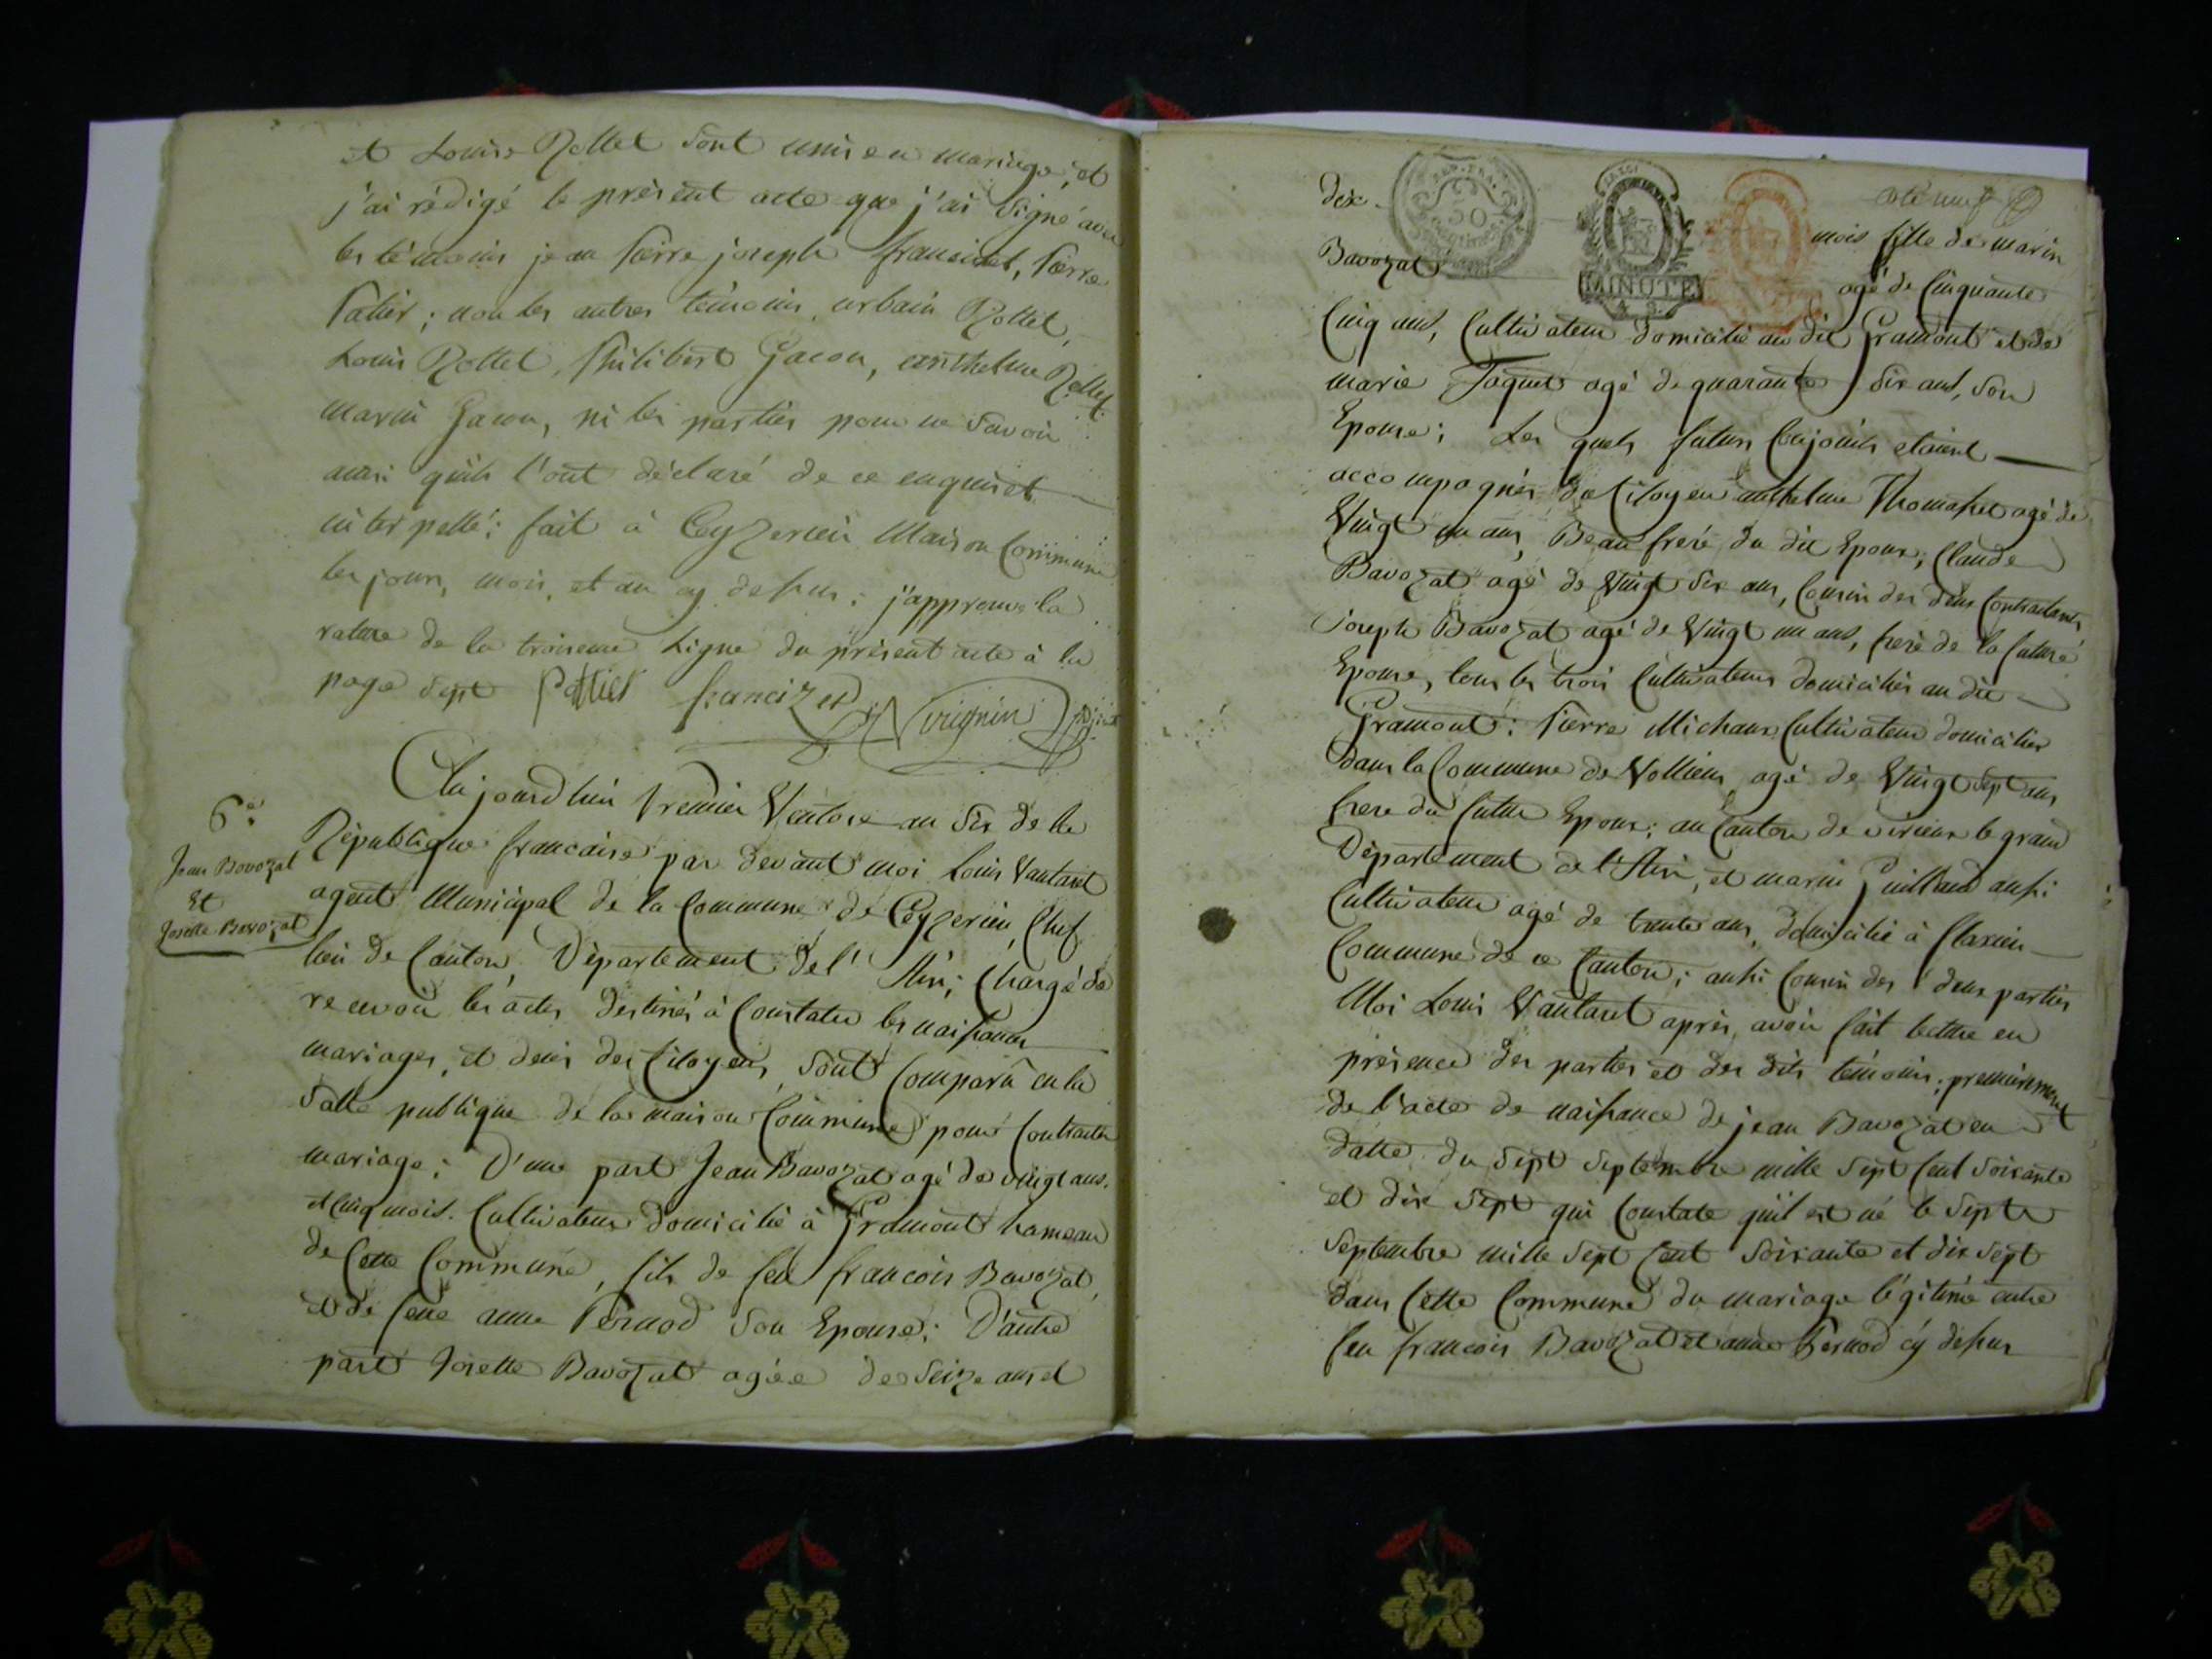 et Louise Rollet sont unis en mariage, et
j'ai rédigé le présent acte que j'ai signé avec
les témoins jean Pierre joseph francizet, Pierre
Pattier; non les autres témoins, urbain Rollet,
Louis Rollet, Philibert Gacon, anthelme Rollet
marin Gacon, ni les parties pour ne savoir
ainsi qu'ils l'ont déclaré de ce enquis et
interpellé: fait à Ceyzerieu Maison Commune
les jour, mois, et an cy dessus: j'approuve la
rature de la troisieme Ligne du présent acte à la
page sept Pattier francizet
Virignin adjoint
6e:
Jean Bovozat
Et
Josette Bovozat
Aujourdhui Premier Ventose an six de la
République francaise par devant moi Louis Vantaret
agent Municipal de la Commune de Ceyzerieu, Chef
lieu de Canton, Département de l'Ain; Chargé de
recevoir les actes destinés à Constater les naissances
mariages, et decis des Citoyens, sont Comparû en la
salle publique de la maison Commune pour Contracter
mariage; D'une part Jean Bavozat agé de vingt ans.
et cinq mois. Cultivateur domicilié à Gramont hameau
de Cette Commune, fils de feu francois Bavozat,
et de feue anne Pernod son Epouse; D'autre
part Josette Bavozat agée de seize ans et
dix. mois fille de marin
30
MINUTE
Bavozat agé de Cinquante
Cinq ans, Cultivateur domicilié au dit Gramont et de
marie Jaquet agé de quarante six ans, son
Epouse; Les quels futurs Conjoints etaient
accompagnés du Citoyen anthelme Thomasset agé de
Vingt un ans, Beau frere du dit Epoux; Claude
Bavozat agé de Vingt six ans, Cousin des deux Contractants
joseph Bavozat agé de Vingt un ans, frere de la future
Epouse, tous les trois Cultivateurs domiciliés au dit
Gramont: Pierre Michaux Cultivateur domicilier
dans la Commune de Vollien agé de Vingt sept ans
frere du futur Epoux; au Canton de virieux le grand
Département de l'Ain, et marin Guilland aussi
Cultivateur agé de trente ans, domicilié à Claxieu
Commune de ce Canton; aussi Cousin des deux parties
Moi Louis Vantaret après, avoir fait lecture en
présence des parties et des dits témoins; premierement
de l'acte de naissance de jean Bavozat en
datte du sept septembre mille sept Cent soixante
et dix sept qui Constate qu'il est né le sept
septembre mille sept Cent soixante et dix sept
dans Cette Commune du mariage légitime entre
feu francois Bavozat et anne Pernod cy dessus